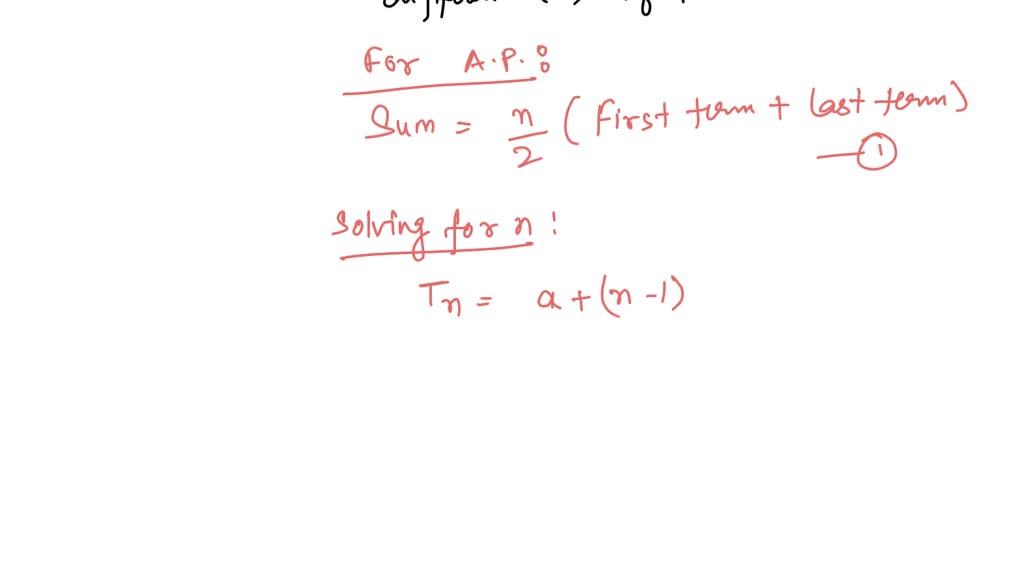 For A.P.:
Sum = n/2 (First term + last term)
—①
Solving for n :
Tn = a + (n -1)